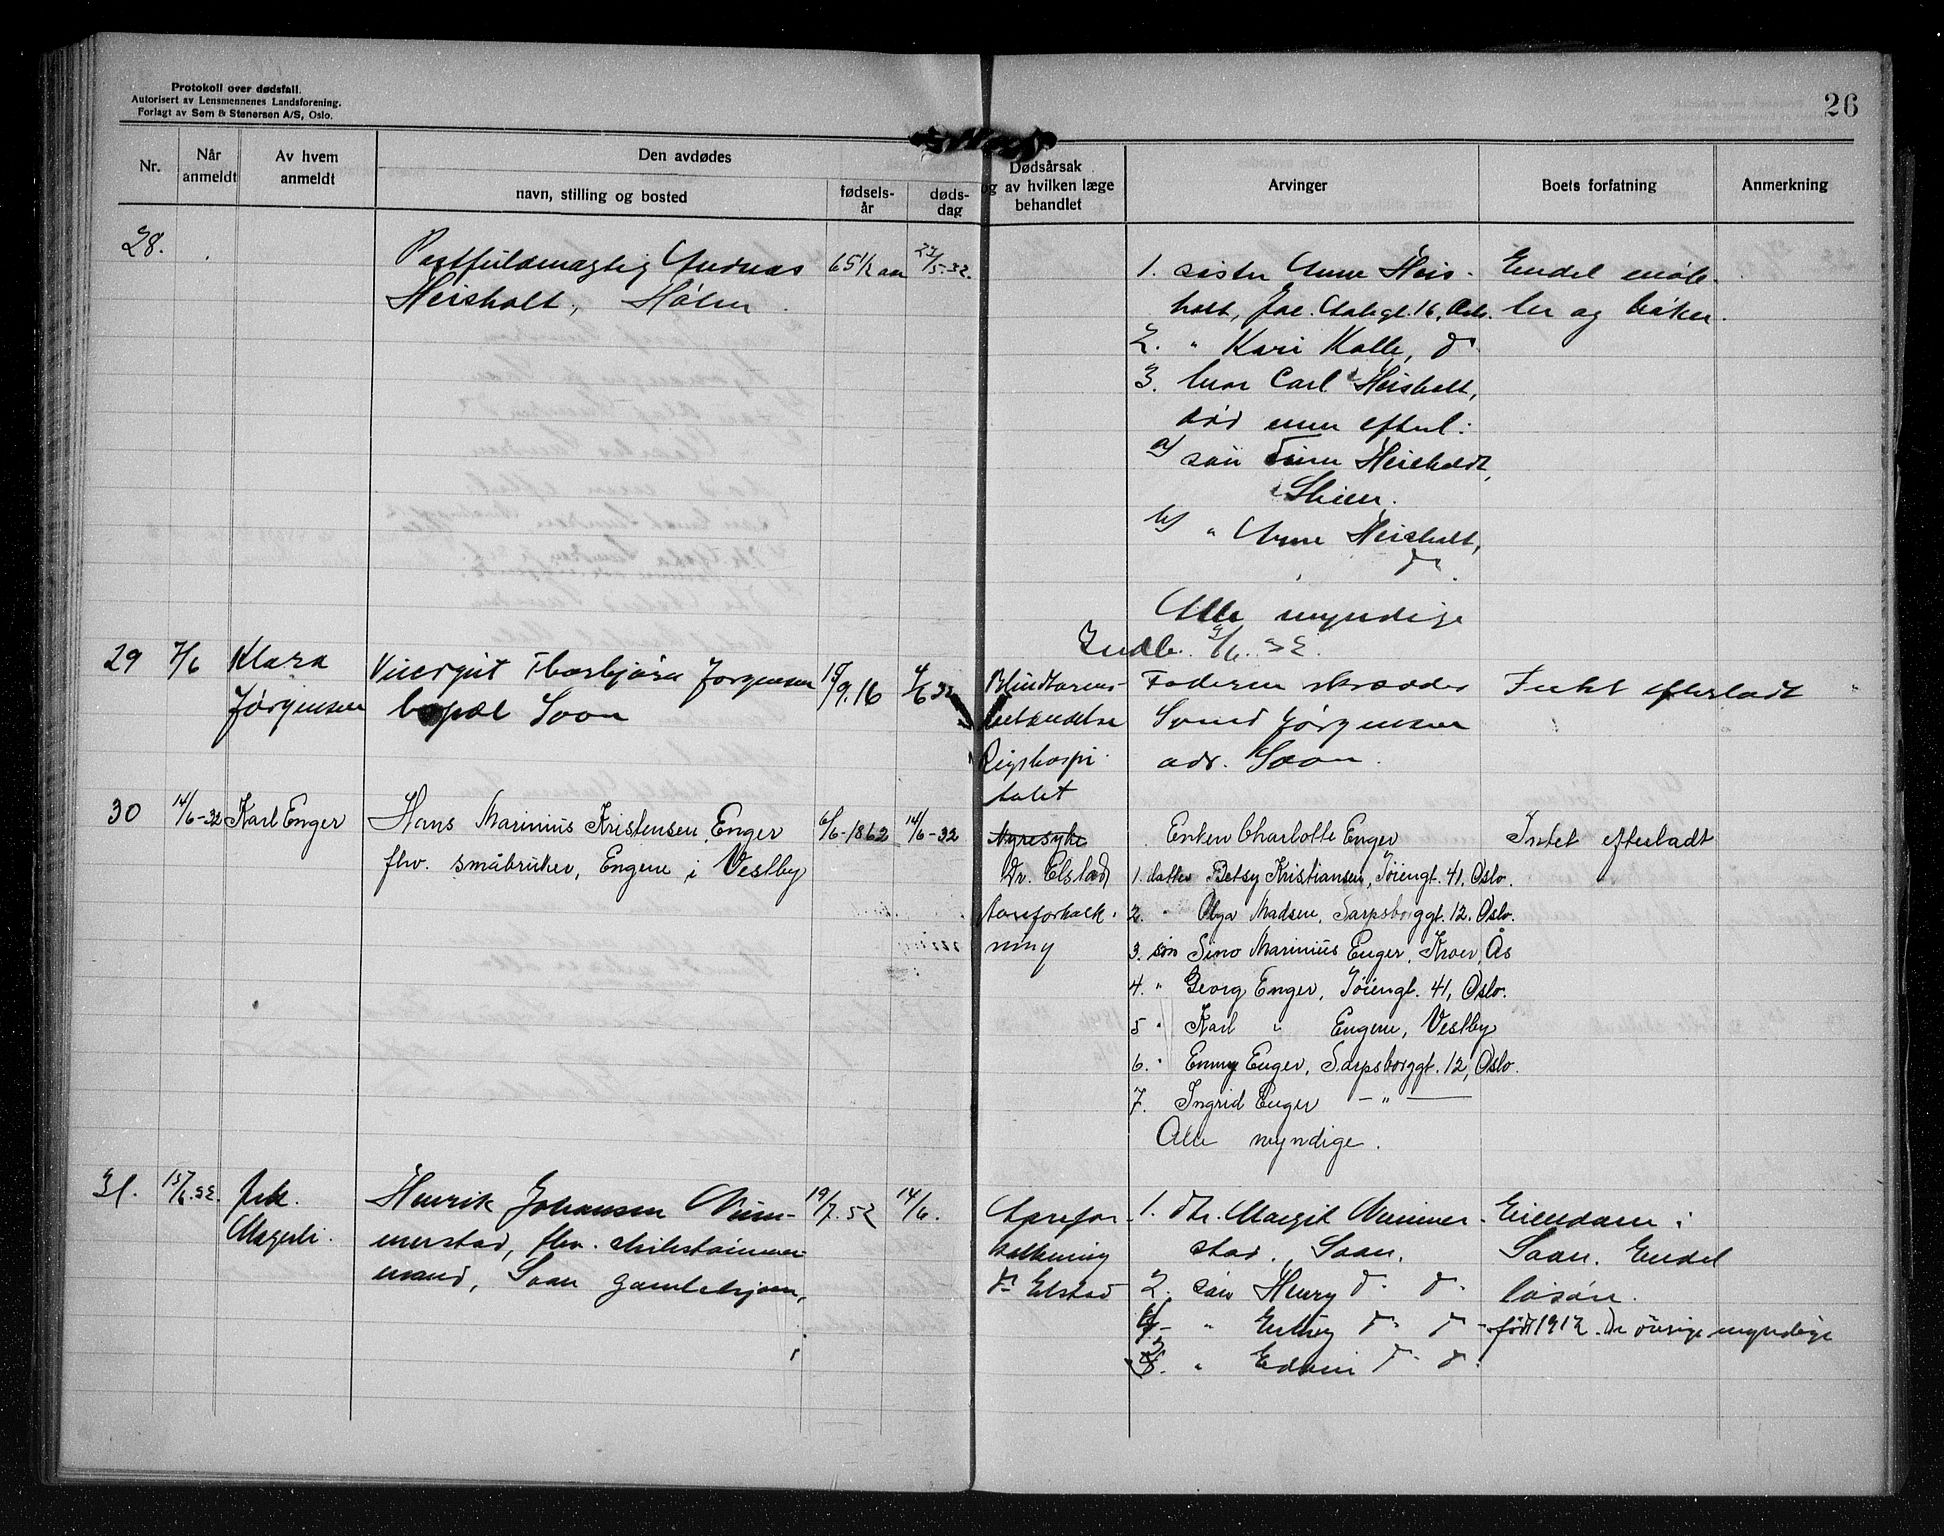 Protokoll over dødsfall.
Autorisert av Lensmennenes Landsforening.
Forlagt av Sem & Stenersen A/S, Oslo.
26
Nr.
Når anmeldt
Av hvem anmeldt
Den avdødes
navn, stilling og bosted
fødselsår
dødsdag
Dødsårsak
og av hvilken læge
behandlet
Arvinger
Boets forfatning
Anmerkning
28.
Postfuldmægtig Andreas
Heisholt, Hølen
65½ aar
27/5-32.
1. søster Anne Heis-
holt, Jac. Aalsgt. 16, Oslo.
2. " Kari Kolle, do
3. bror Carl Heisholt,
død men efterl:
a) søn Einer Heisholdt,
Skien.
b) " Arne Heisholt,
do
Alle myndige
Indb. 9/6. 32.
Endel møb-
ler og bøker.
29
7/6
Klara
Jørgensen
Visergut Thorbjørn Jørgensen
bopæl Soon
17/9.16
4/6 32
Blindtarms-
betændelse
Rigshospi-
talet
Faderen skrædder
Svend Jørgensen
adr. Soon.
Intet efterladt
30
14/6-32
Karl Enger
Hans Marinius Kristensen Enger
fhv. småbruker, Engene i Vestby
6/6-1862
14/6-32
Nyresyke
Dr. Elstad
Aareforkalk-
ning
Enken Charlotte Enger
1. datter Betsy Kristiansen, Tøiengt. 41, Oslo.
2. " Olga Madsen, Sarpsborggt. 12, Oslo.
3. søn Simo Marinius Enger, Kroer, Ås
4. " Georg Enger, Tøiengt. 41, Oslo.
5 " Karl " Engene, Vestby
6. " Enny Enger, Sarpsborggt. 12, Oslo.
7. Ingrid Enger — " —
Alle myndige.
Intet efterladt
31.
15/6.32.
frk.
Magerli.
Henrik Johansen Wim-
merstad, fhv. skibstømmer-
mand, Soon gamlehjem,
19/7.52
14/6.
Aarefor-
kalkning
dr Elstad
1. dtr. Margit Wimmer-
stad. Soon.
2. søn Henry do do
4 " Erling do do - født 1912. De øvrige myndige
3. " Edvin do do
Eiendom i
Soon. Endel
løsøre.